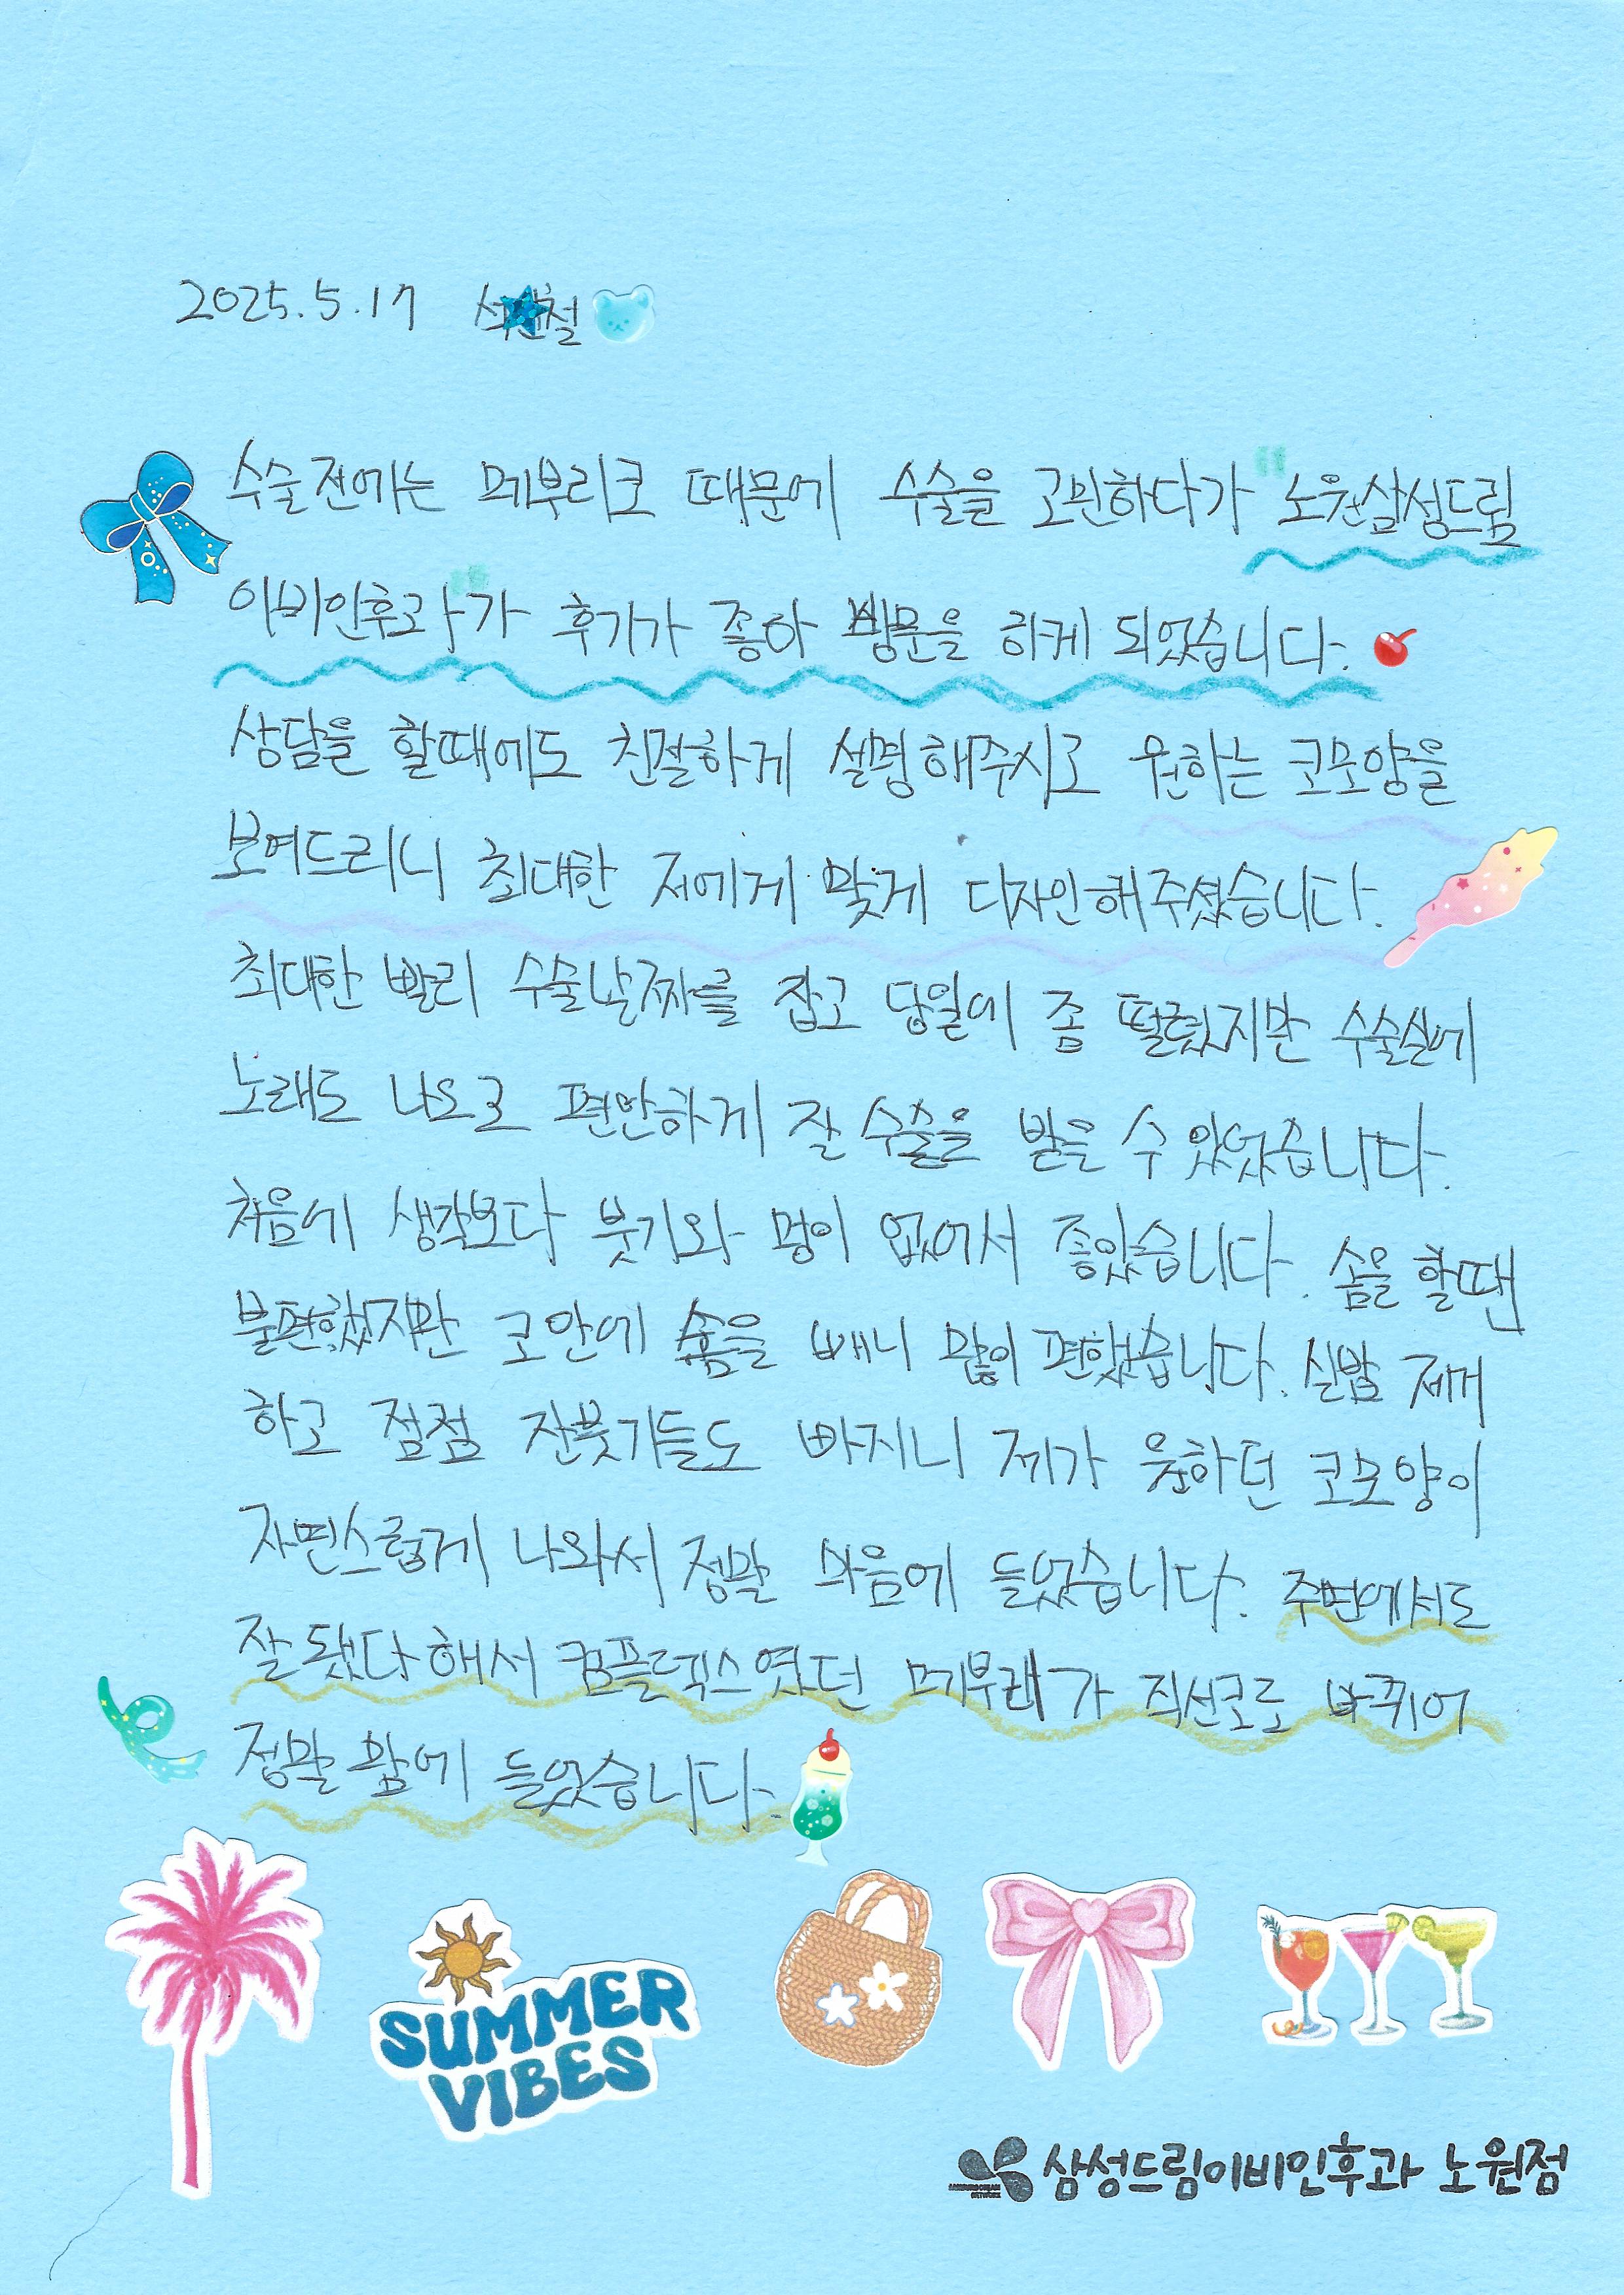 2025.5.17
수술전에는 메부리코 때문에 수술을 고민하다가 "노원삼성드림
이비인후과"가 후기가 좋아 방문을 하게 되었습니다.
상담을 할때에도 친절하게 설명해주시고 원하는 코모양을
보여드리니 최대한 저에게 맞게 디자인해주셨습니다.
최대한 빨리 수술날짜를 잡고 당일에 좀 떨렸지만 수술실에
노래도 나오고 편안하게 잘 수술을 받을 수 있었습니다.
처음에 생각보다 붓기와 멍이 없어서 좋았습니다. 솜을 할땐
불편했지만 코안에 솜을 빼니 많이 편했습니다. 실밥 제거
하고 점점 잔붓기들도 빠지니 제가 원하던 코모양이
자연스럽게 나와서 정말 마음에 들었습니다. 주변에서도
잘됐다해서 컴플렉스였던 메부래가 직선코로 바뀌어
정말 맘에 들었습니다.
SUMMER
VIBES
삼성드림이비인후과 노원점